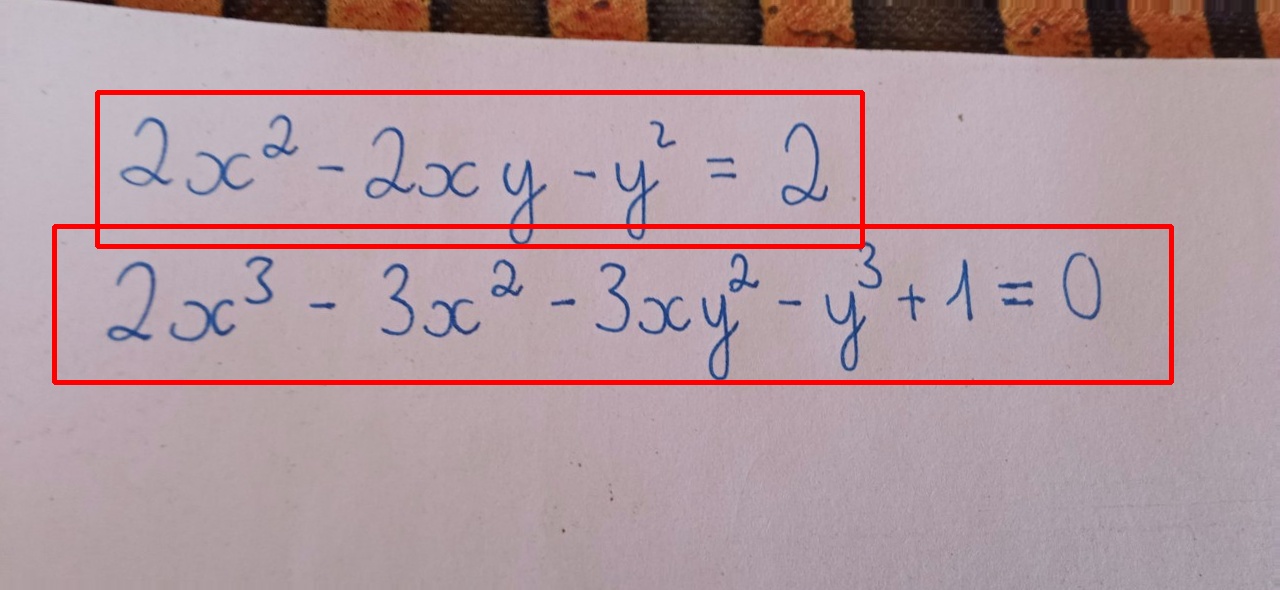 2x² - 2xy - y² = 2
2x³ - 3x² - 3xy² - y³ + 1 = 0